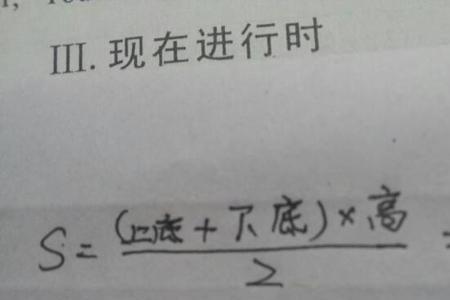 III. 现在进行时
S = (上底 + 下底) × 高 / 2 =